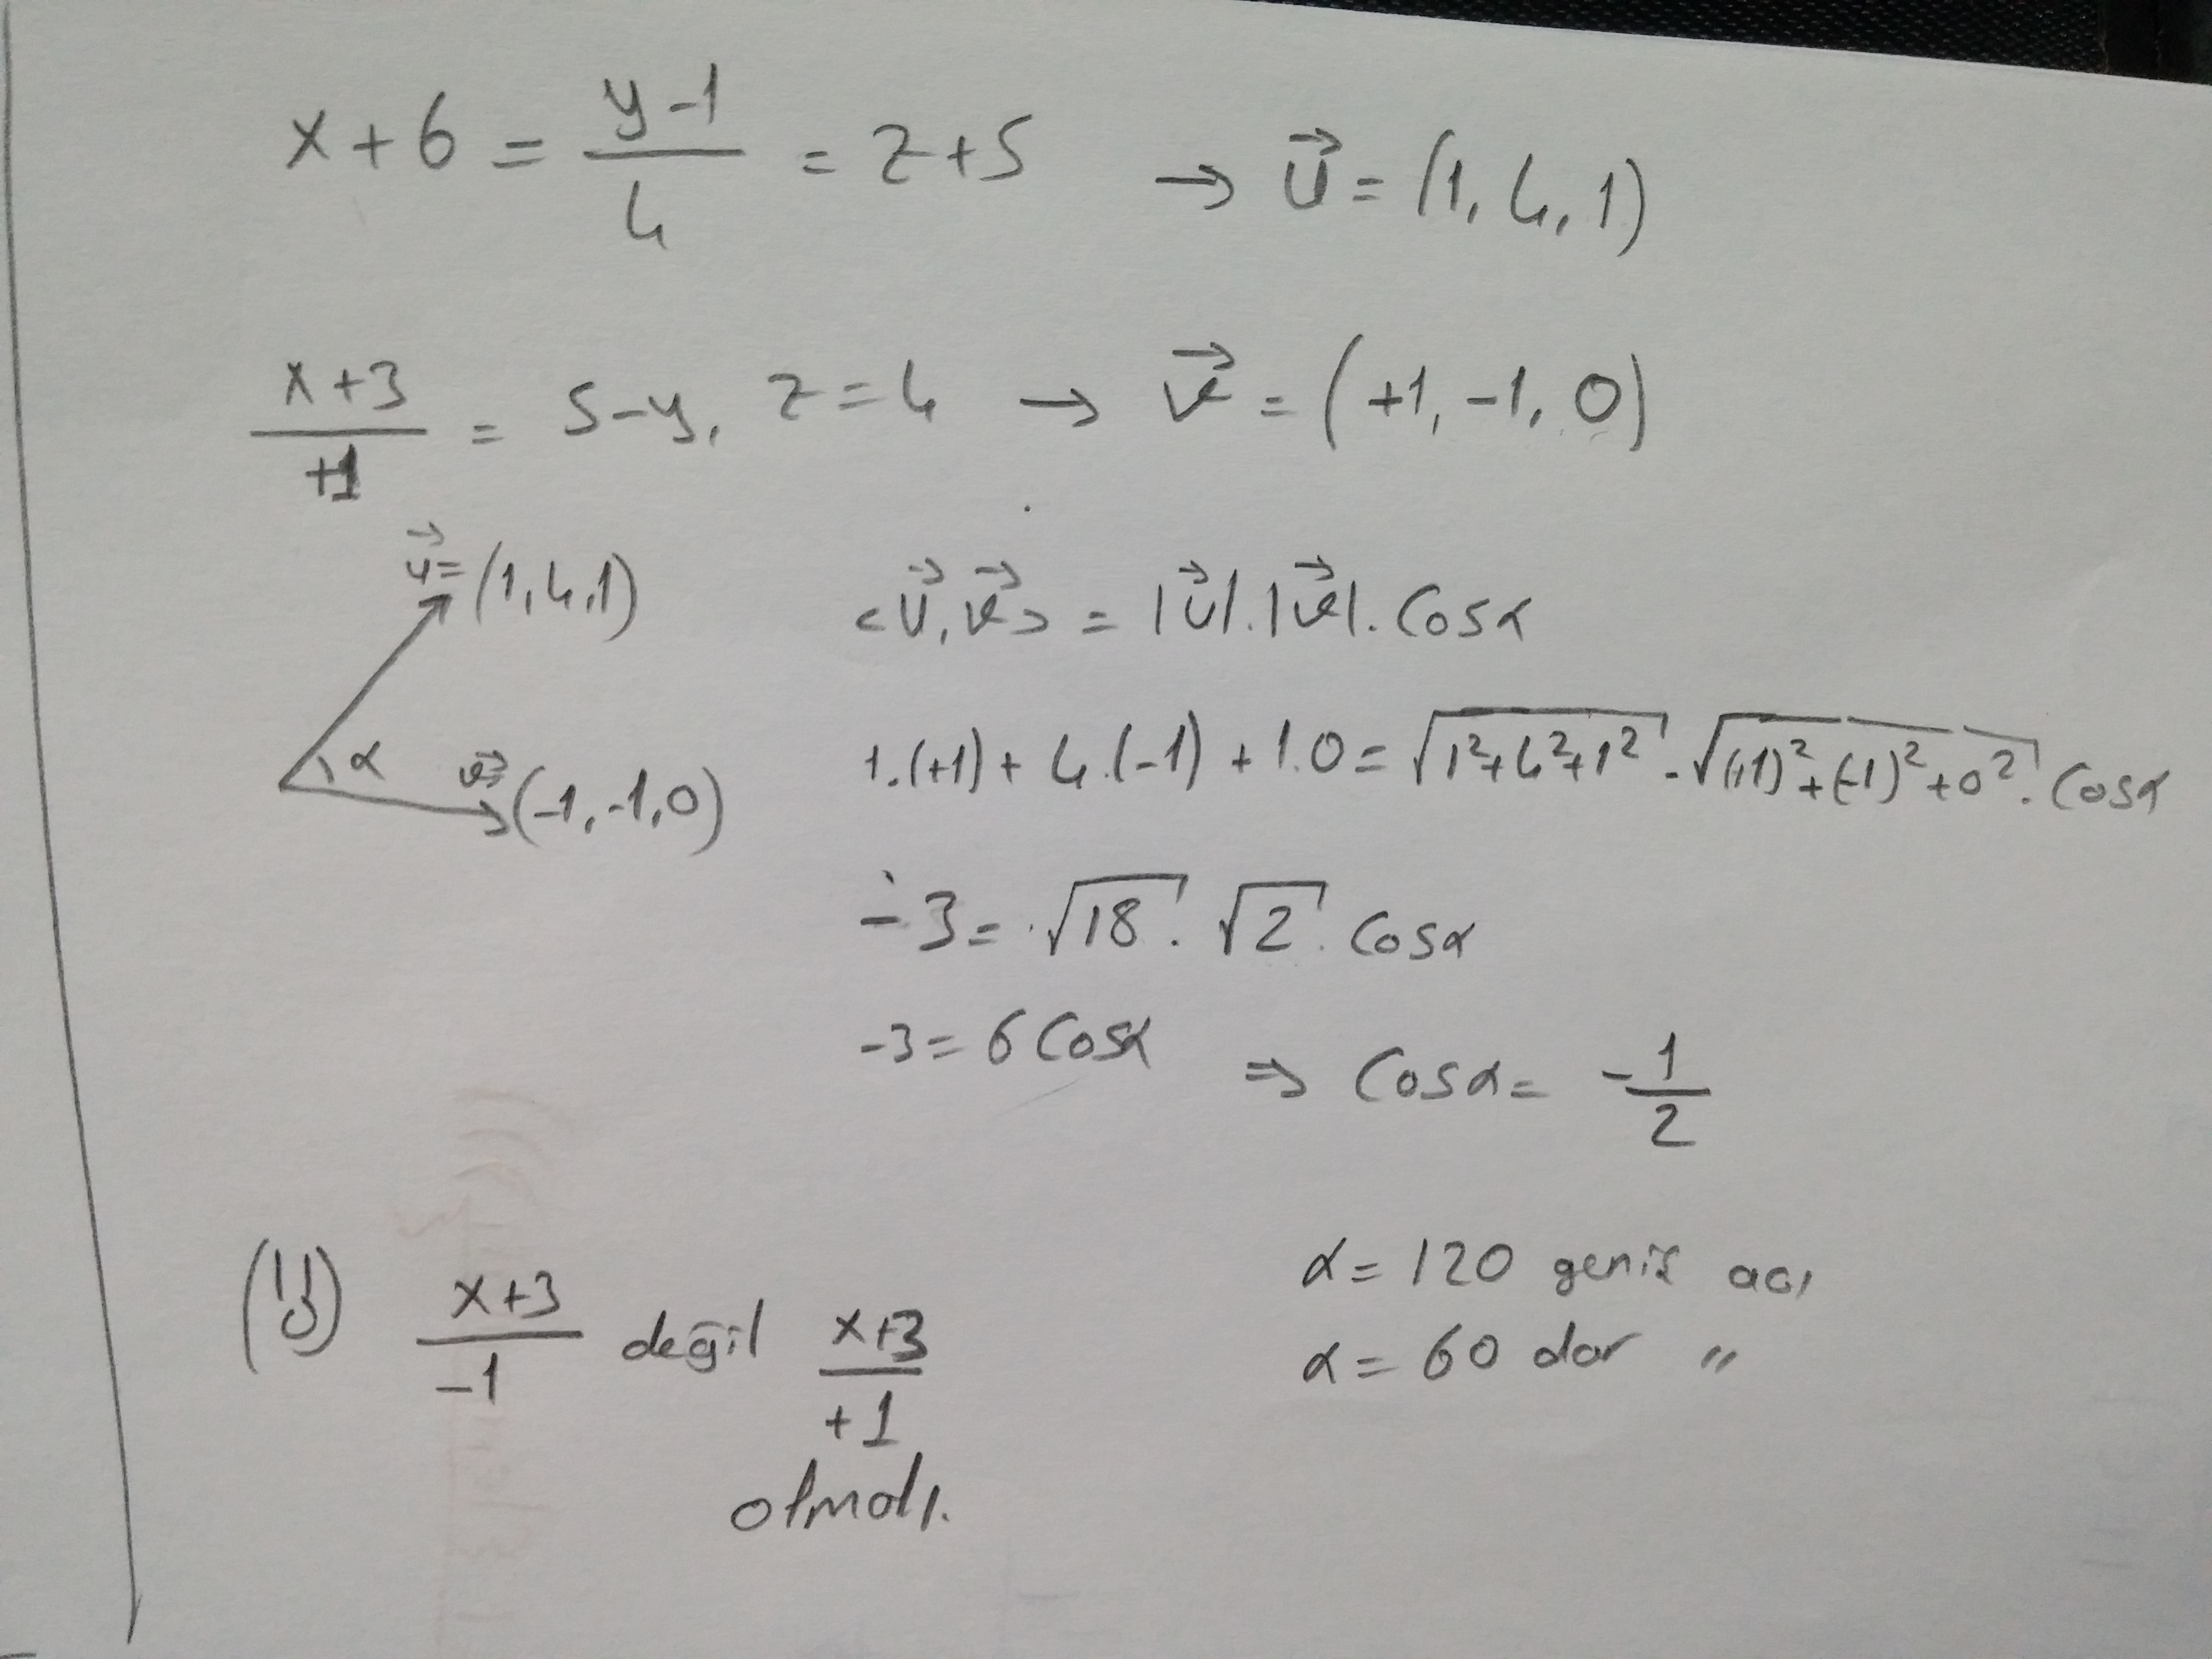 x+6 = (y-1)/4 = z+5 → u⃗ = (1, 4, 1)
(x+3)/+1 = 5-y, z=4 → v⃗ = (+1, -1, 0)
u⃗= (1,4,1)
α
v⃗= (-1,-1,0)
<u⃗,v⃗> = |u⃗|.|v⃗|. Cosα
1.(+1) + 4.(-1) + 1.0 = √(1²+4²+1²) . √((+1)²+(-1)²+0²) . Cosα
-3 = √18 . √2 . Cosα
-3 = 6 Cosα ⇒ Cosα = -1/2
α = 120 geniş açı
α = 60 dar "
(!!) (x+3)/-1 değil (x+3)/+1
olmalı.